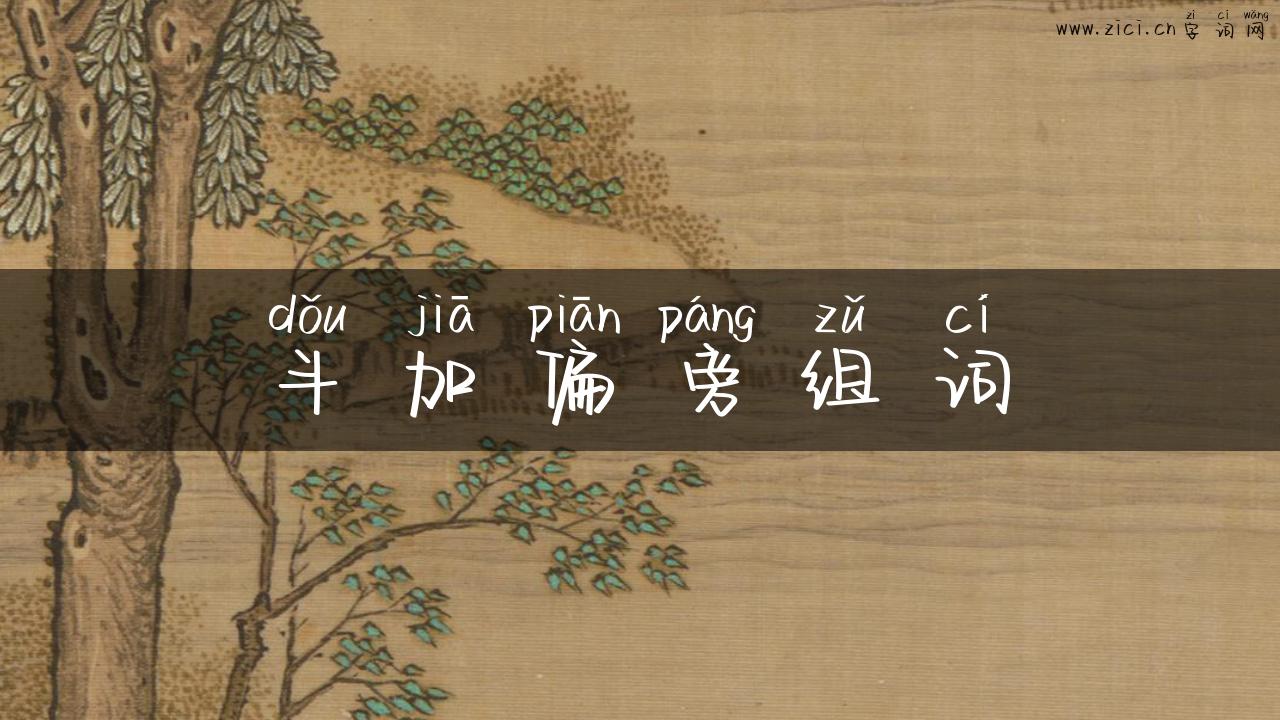 zì cí wǎng
www.zici.cn 字词网
dǒu jiā piān páng zǔ cí
斗加偏旁组词